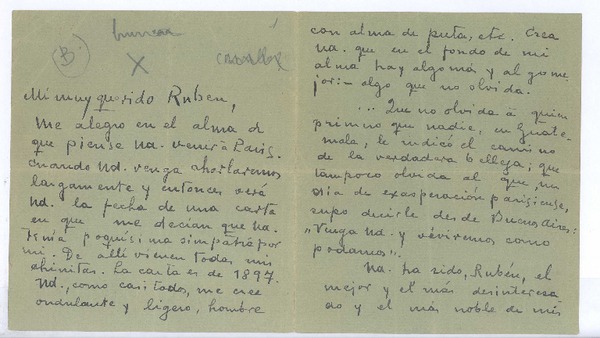 (B)
X
Mi muy querido Ruben,
Me alegro en el alma d
que piense Ud. venir à Paris.
Cuando Ud. venga charlaremos
largamente y entonces verá
Ud. la fecha de una carta
en que me decían que Ud.
tenía poquísima simpatía por
mi. De allí vienen todas mis
chinitas. La carta es de 1897.
Ud., como casi todos, me cree
ondulante y ligero, hombre
con alma de puta, etc. Crea
Ud. que en el fondo de mi
alma hay algo más y algo me
jor:— algo que no olvida.
... Que no olvida à quien
primero que nadie, en Guate-
mala, le indicó el camino
de la verdadera belleza; que
tampoco olvida al que, un
día de exasperación parisiense,
supo decirle desde Buenos Aires:
„Venga Ud. y viviremos como
podamos".
Ud. ha sido, Rubén, el
mejor y el más desinteresa
do y el más noble de mis